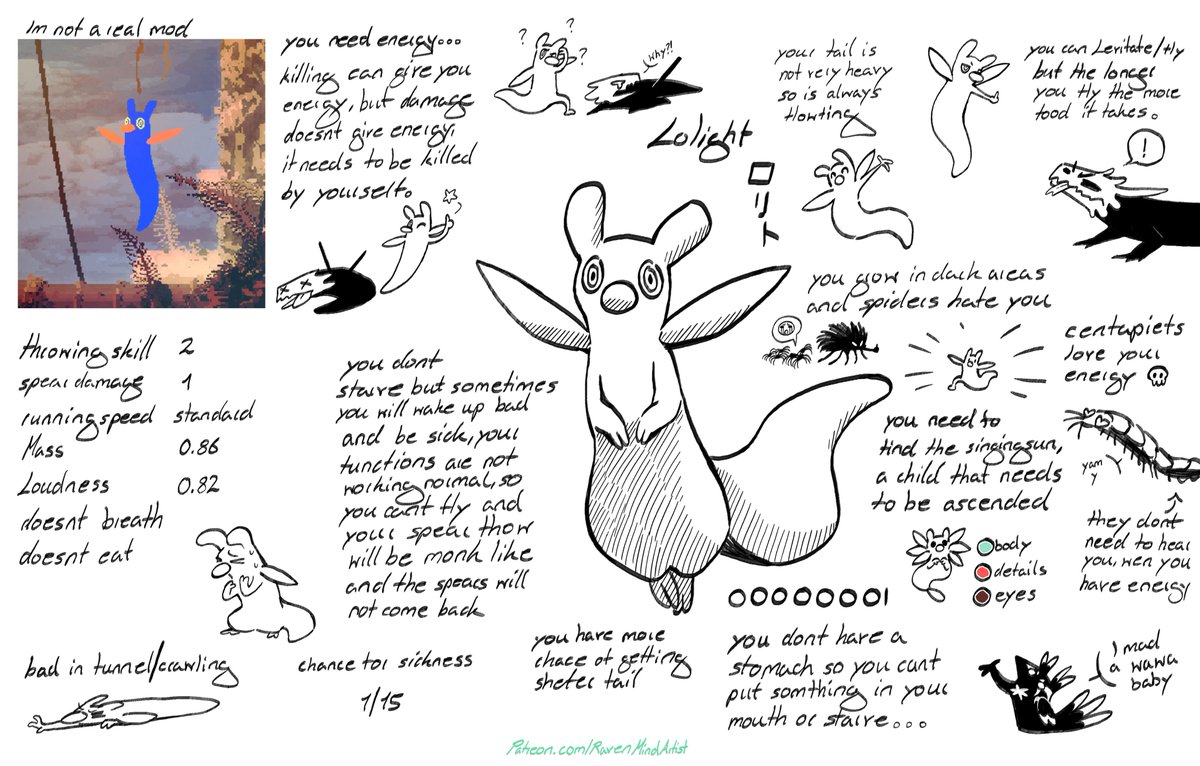 Im not a real mod
you need energy...
killing can give you
energy, but damage
doesnt give energy,
it needs to be killed
by yourself.
? ? ?
why?!
Lolight
ロリト
your tail is
not very heavy
so is always
flowting
you can Levitate/fly
but the longer
you fly the more
food it takes.
!
you glow in dark areas
and spiders hate you
centapiets
love your
energy
yam
y
they dont
need to hear
you, wen you
have energy
you need to
find the singing sun,
a child that needs
to be ascended
body
details
eyes
throwing skill 2
spear damage 1
running speed standard
Mass 0.86
Loudness 0.82
doesnt breath
doesnt eat
you dont
starve but sometimes
you will wake up bad
and be sick, your
functions are not
working normal, so
you cant fly and
your spear thow
will be monk like
and the spears will
not come back
bad in tunnel/crawling
chance for sickness
1/15
you have more
chace of getting
shelter fail
you dont have a
stomach so you cant
put somthing in your
mouth or starve...
I mad
a wawa
baby
Patreon.com/RavenMindArtist